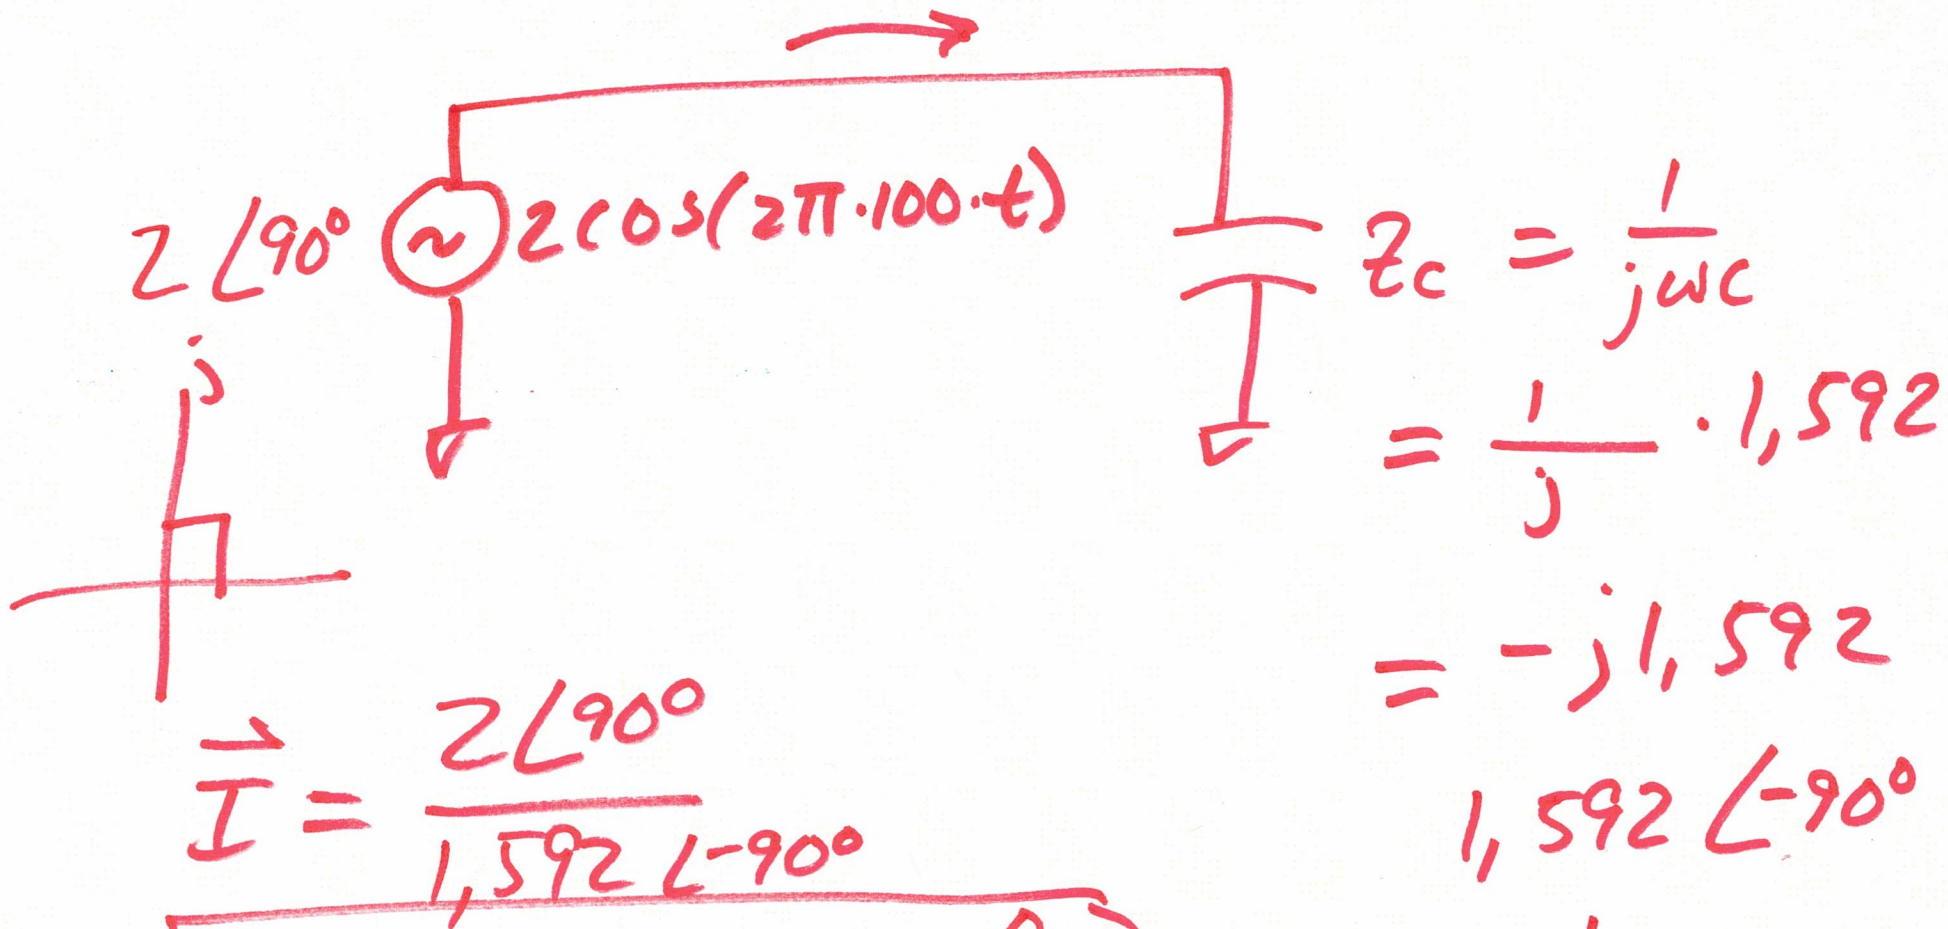 2 ∠90° ~ 2cos(2π·100·t)
Zc = 1/jωc
= 1/j · 1,592
= -j1,592
1,592 ∠-90°
j
I⃗ = 2∠90° / 1,592 ∠-90°